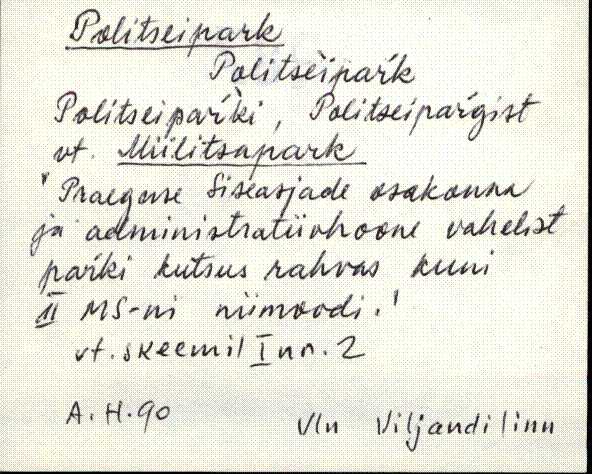 Politseipark
Politsèipaŕk
Politseipaŕki, Politseipaŕgist
vt. Miilitsapark
'Praeguse Siseasjade osakonna
ja administratiivhoone vahelist
parki kutsus rahvas kuni
II MS-ni niimoodi.'
vt. skeemil I nr. 2
A.H.90 Vln Viljandi linn